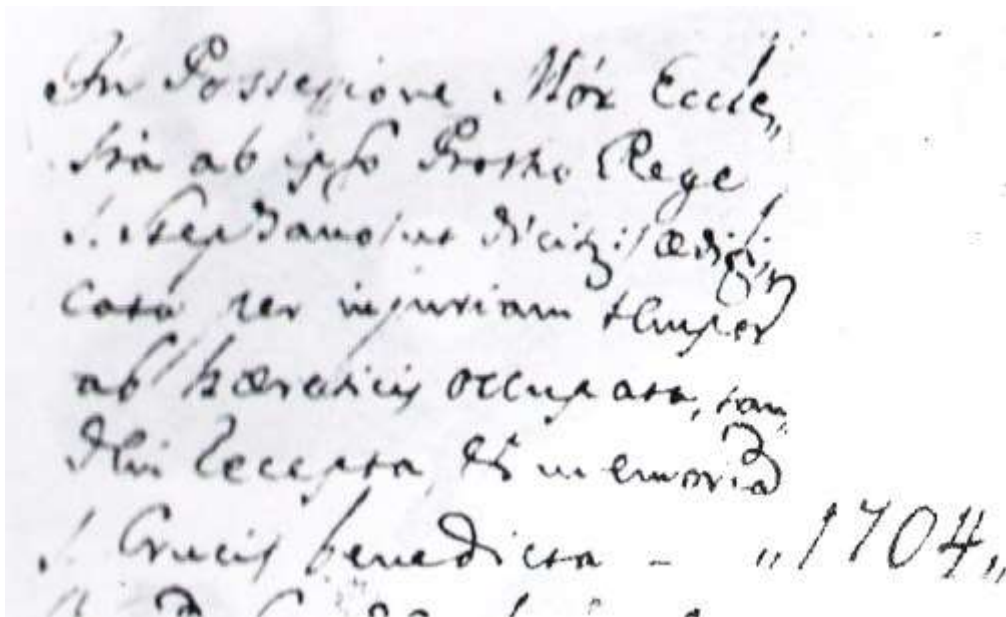 In Possessione Mór Eccle„
sia ab ipso Protho Rege
S. Stephano /: ut dicitur :/ ædifi„
cata per injuriam temper
ab hæreticis occupata, tan„
dem recepta, et in memoria
S. Crucis benedicta – „1704„